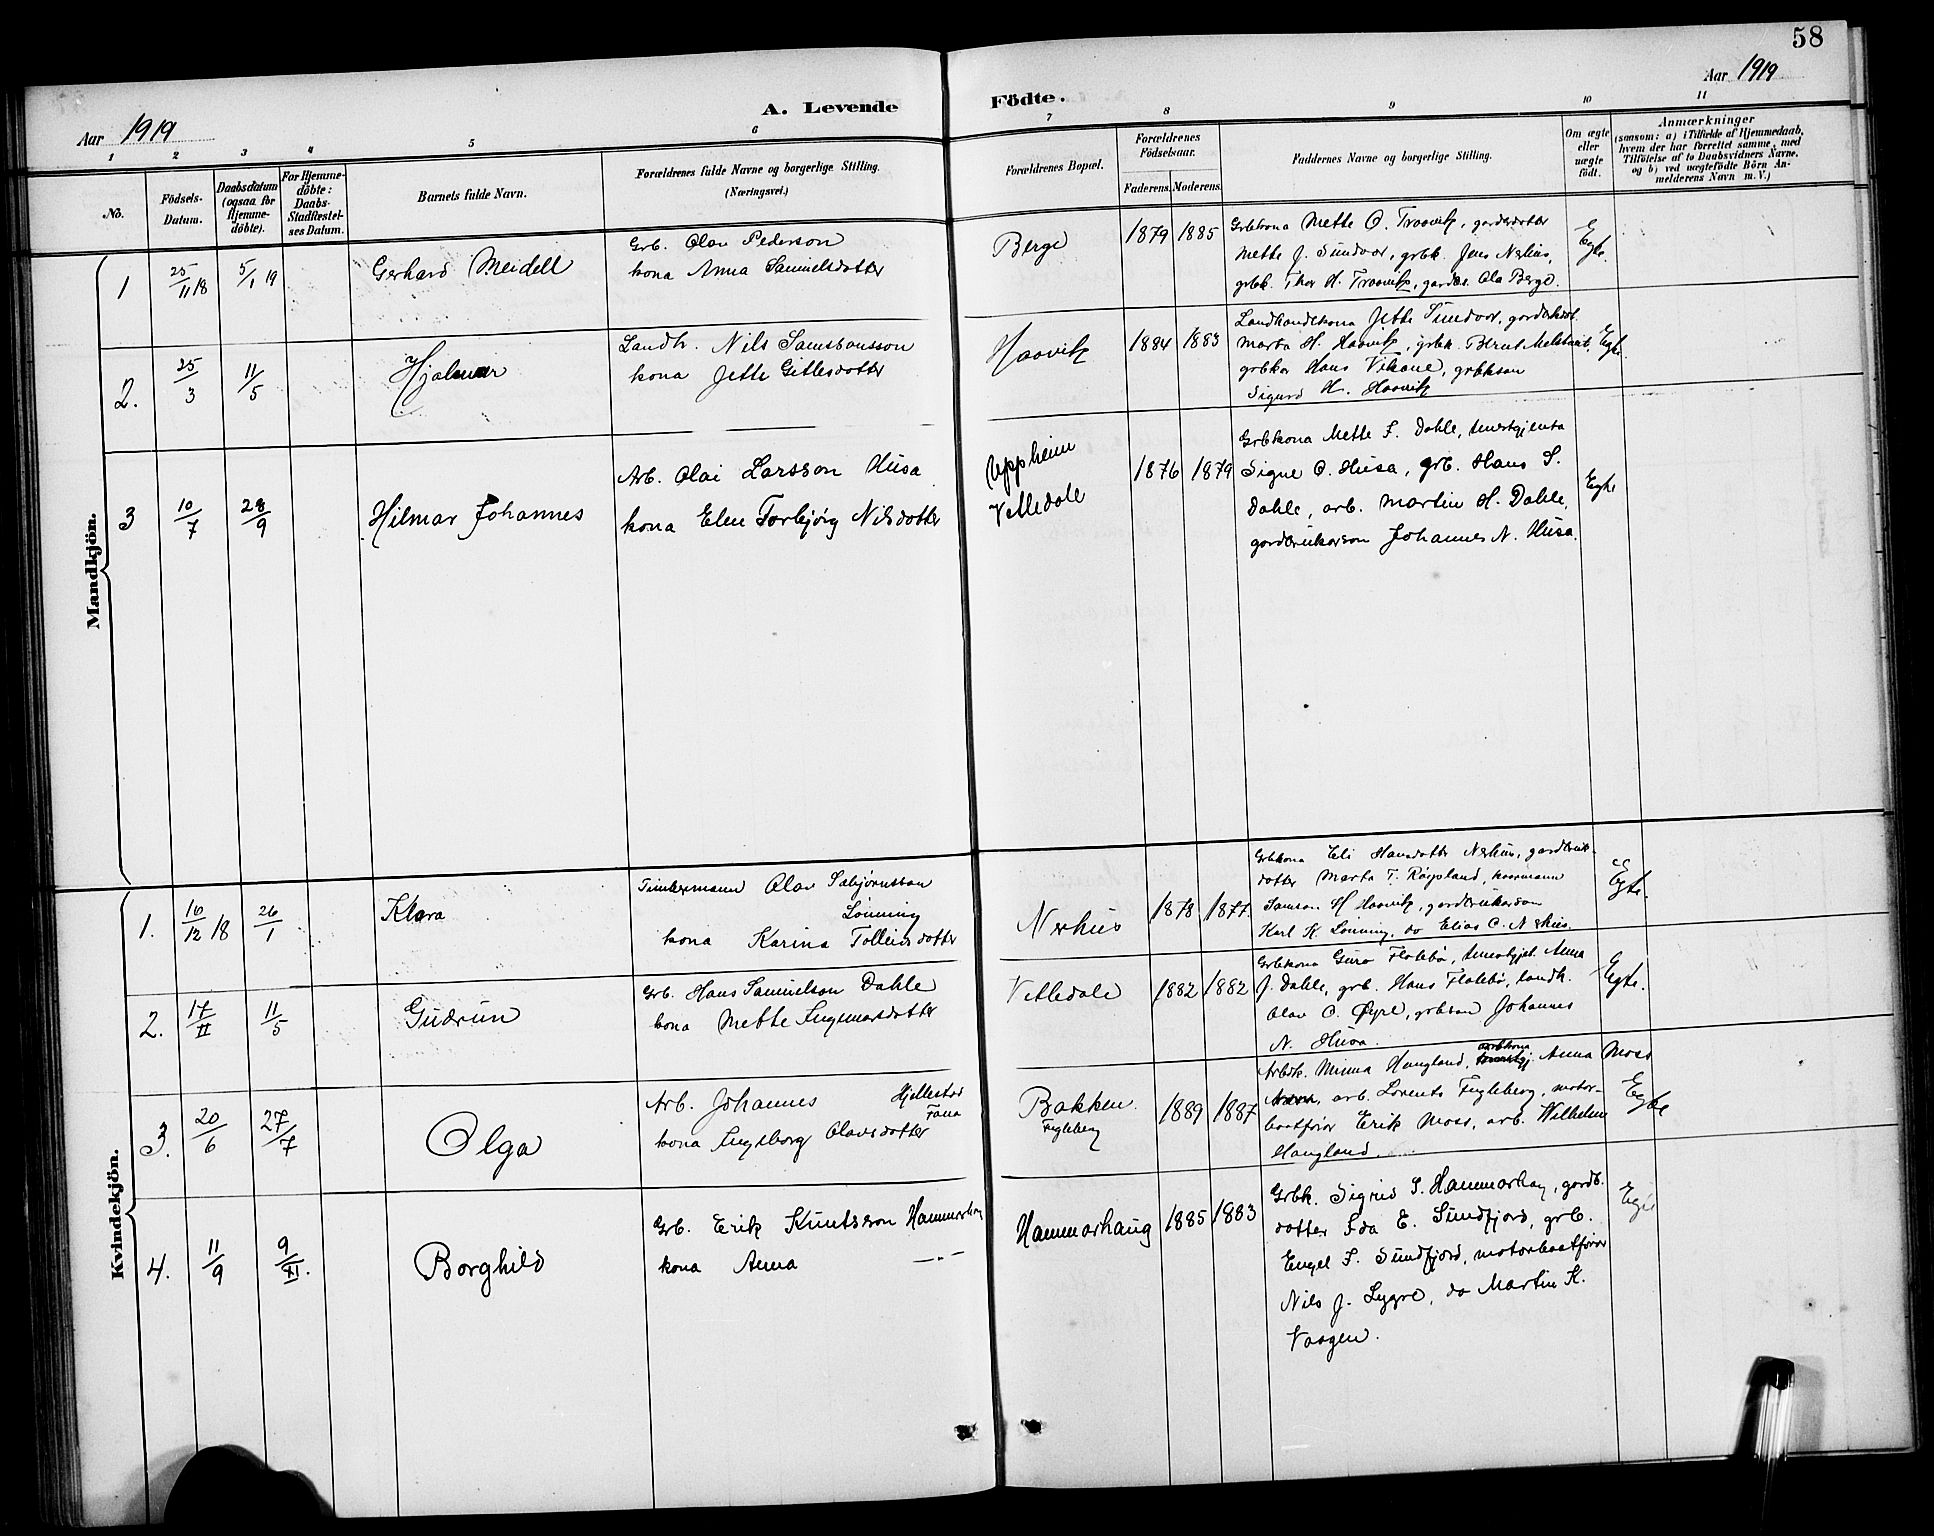 58
Aar 1919
A. Levende Födte.
Aar 1919
1 2 3 4 5 6 7 8 9 10 11
No.
Födsels-
Datum.
Daabsdatum
(ogsaa for
Hjemme-
döbte).
For Hjemme-
döbte:
Daabs-
Stadfæstel-
ses Datum.
Barnets fulde Navn.
Forældrenes fulde Navne og borgerlige Stilling.
(Næringsvei.)
Forældrenes Bopæl.
Forældrenes
Födselsaar.
Faderens. Moderens.
Faddernes Navne og borgerlige Stilling.
Om ægte
eller
uægte
født.
Anmærkninger
(saasom: a) i Tilfælde af Hjemmedaab,
hvem der har forrettet samme, med
Tilføielse af to Daabsvidners Navne,
og b) ved uægtefödte Börn An-
melderens Navn m. V.)
Mandkjön.
1
25/11 18
5/1 19
Gerhard Meidell
Grb. Olav Pederson
kona Anna Samuelsdotter
Berge
1879 1885
Grbkona Mette O. Traavik, gardsdotter
Mette J. Sundvor, grbk. Jens Nerhus,
grbk. Thor H. Traavik, gardss. Ola Berge.
Egte.
2.
25/3
11/5
Hjalmar
Landh. Nils Samsonsson
kona Jette Gitlesdotter
Haavik
1884 1883
Landhandlkona Jette Sundvor,
Marta H. Haavik, grbk.
grbkar Hans Vikane, grbkson
Sigurd H. Haavik
Egte.
3
10/7
28/9
Hilmar Johannes
Arb. Olai Larsson Husa
kona Elen Torbjørg Nilsdotter
Uppheim
Vetledale
1876 1879
Grbkona Mette F. Dahle, tenestgjenta
Signe O. Husa, grb. Hans S.
Dahle, arb. Martin H. Dahle,
gardbrukarson Johannes N. Husa.
Egte
Kvindekjön.
1.
10/12 18
26/1
Klara
Timbermann Olav Sæbjørnsson
Lønning
kona Karina Tolleivsdotter
Nerhus
1878 1877
Grbkona Eli Hansdotter Nerhus, gardbruk-
dotter Marta T. Røgsland,
Samson H Haavik, gardbrukarson
Karl K Lønning, do Elias C. Nerhus.
Egte.
2.
17/II
11/5
Gudrun
Grb. Hans Samuelson Dahle
kona Mette Ingmarsdotter
Vetledale
1882 1882
Grbkona Guro Flatebø, tenestgjet. Anna
J. Dahle, grb. Hans Flatebø, landh.
Olav O. Øyre, grbson Johannes
N. Husa.
Egte.
3.
20/6
27/7
Olga
Arb. Johannes Hjellestad
Fana
kona Ingeborg Olavsdotter
Bakken
Fugleberg
1889 1887
Arbdk. Minna Haugland, arbkona Anna Moss
arb. Lorents Fugleberg, motor-
baatførar Erik Moss, arb. Wilhelm
Haugland.
Egte
4.
11/9
9/XI.
Borghild
Grb. Erik Knutsson Hammarhaug
kona Anna —„—
Hammarhaug
1885 1883
Grbk. Sigrid S. Hammarhaug, gardb.
dotter Ida E. Sundfjord, grb.
Engel S. Sundfjord, motorbaatførar
Nils J. Lygre, do Martin K.
Vaagen.
Egte